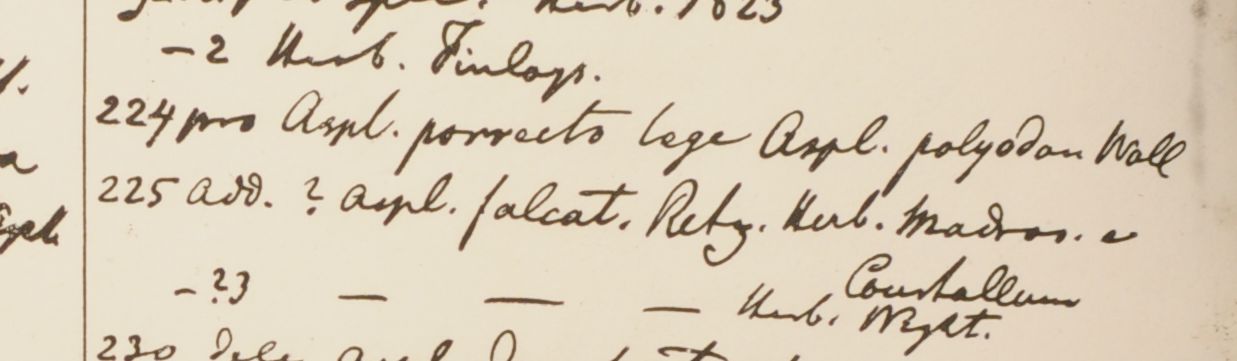 Herb. 1823
—2 Herb. Finlays.
224 pro Aspl. porrecto lege Aspl. polyodon Wall
225 add. ? aspl. falcat. Retz. Herb. Madras. e
Courtallum
—?3 — — — Herb. Wight.
230 dele aspl.